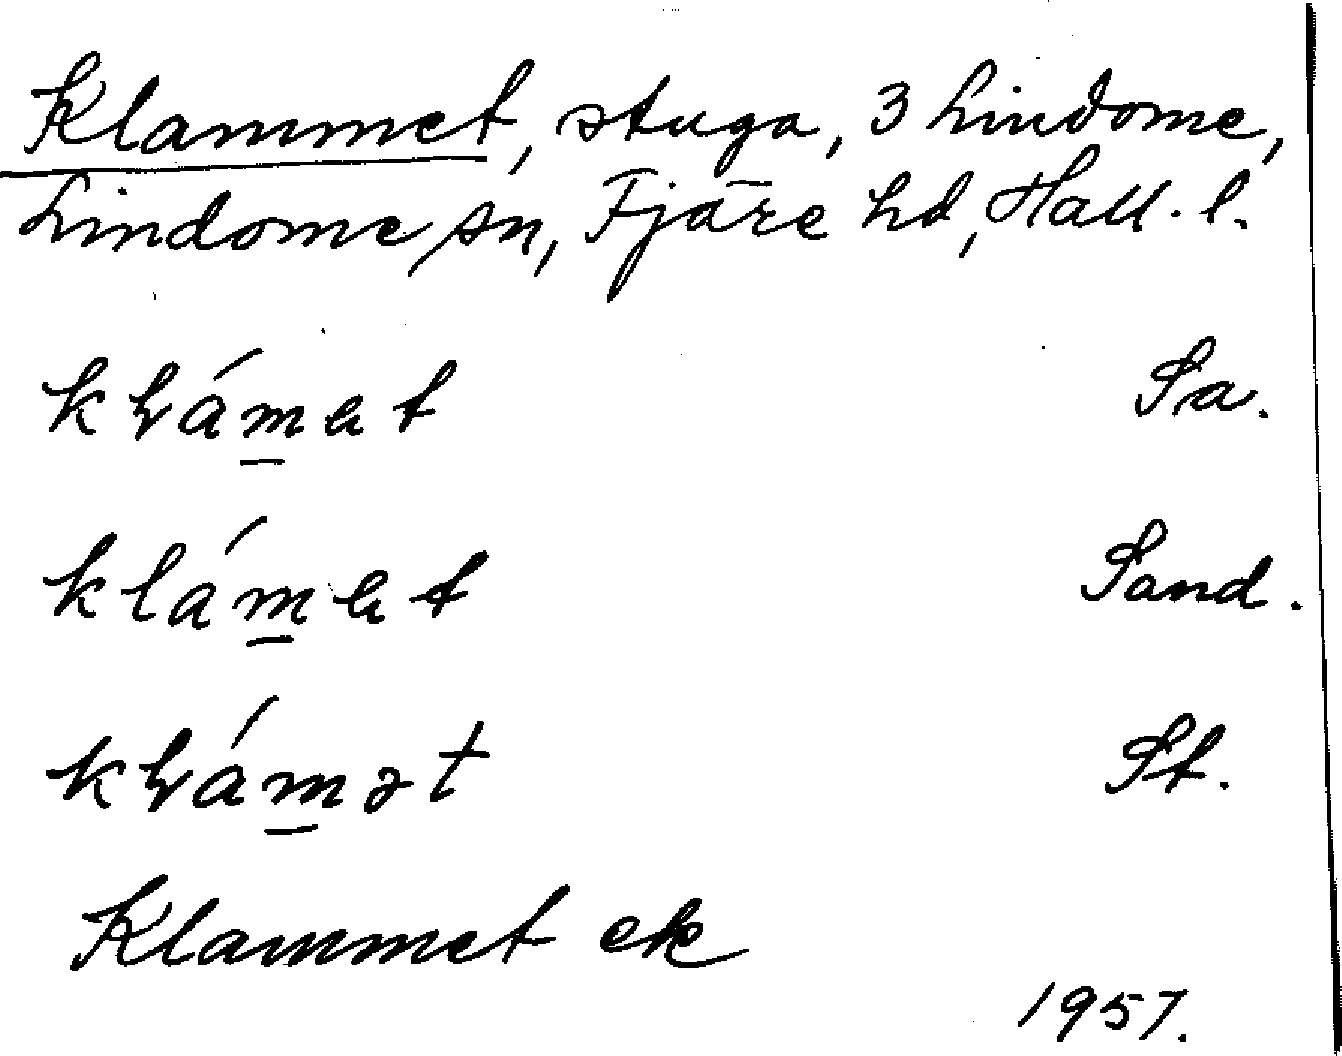 Klammet, stuga, 3 Lindome,
Lindome sn, Fjäre hd, Hall. l.
Sa.
klámat Sand.
St.
Klammet ek
1957.